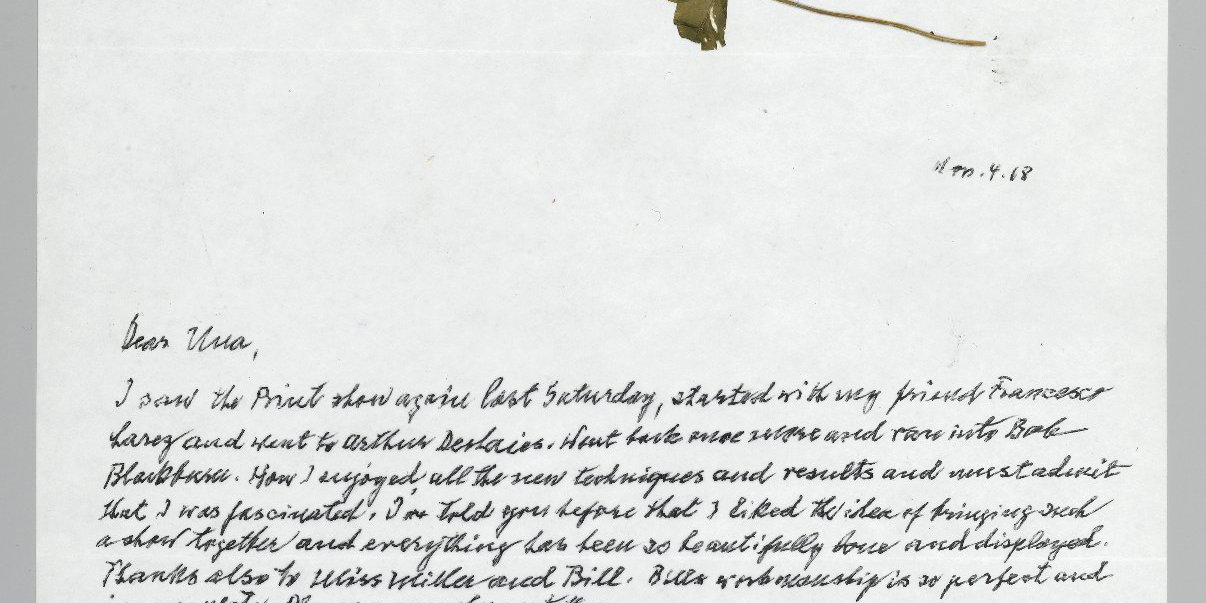 Nov. 4. 68
Dear Una,
I saw the Print show again last Saturday, started with my friend Francesco
Larez and went to Arthur Deshaies. Went back once more and ran into Bob
Blackburn. How I enjoyed all the new techniques and results and must admit
that I was fascinated. I've told you before that I liked the idea of bringing such
a show together and everything has been so beautifully done and displayed.
Thanks also to Miss Miller and Bill. Bills workmanship is so perfect and